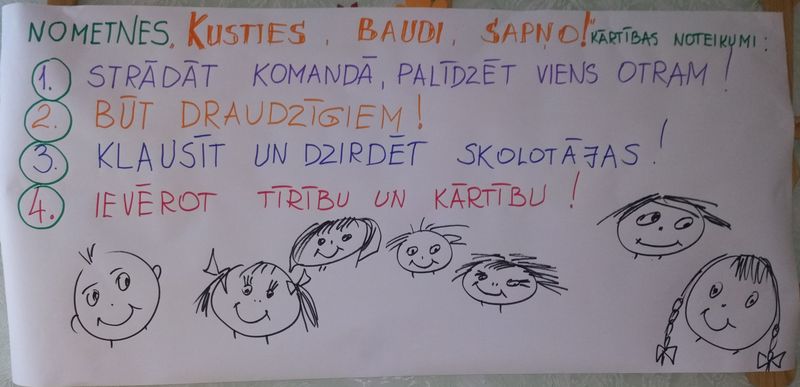 NOMETNES "KUSTIES, BAUDI, SAPŅO!" KĀRTĪBAS NOTEIKUMI:
1. STRĀDĀT KOMANDĀ, PALĪDZĒT VIENS OTRAM!
2. BŪT DRAUDZĪGIEM!
3. KLAUSĪT UN DZIRDĒT SKOLOTĀJAS!
4. IEVĒROT TĪRĪBU UN KĀRTĪBU!